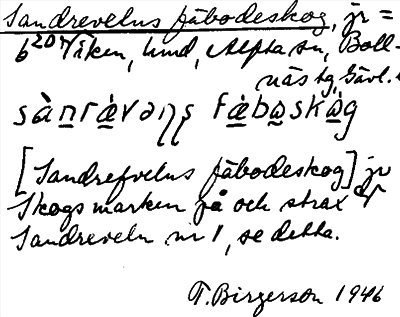 Sandrevelns fäbodeskog, jr =
b²⁰ Viken, hmd, Alfta sn, Boll-
näs tg, Gävl.
sànrǽvəηʂ fǽbo̲skò̲g
[Sandrefvelns fäbodeskog] jr
Skogsmarken på och strax
Sandreveln nr 1, se detta.
T. Birgerson 1946